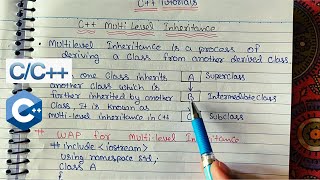 C++ Tutorials
C++ Multi Level Inheritance
Multilevel Inheritance is a process of
deriving a class from another derived class.
one class inherits
another class which is
further inherited by another
class, it is known as
multilevel inheritance in C++
A Superclass
B Intermediate Class
Subclass
C/C++
C++
WAP for Multilevel Inheritance
#include <iostream>
using namespace std;
class A